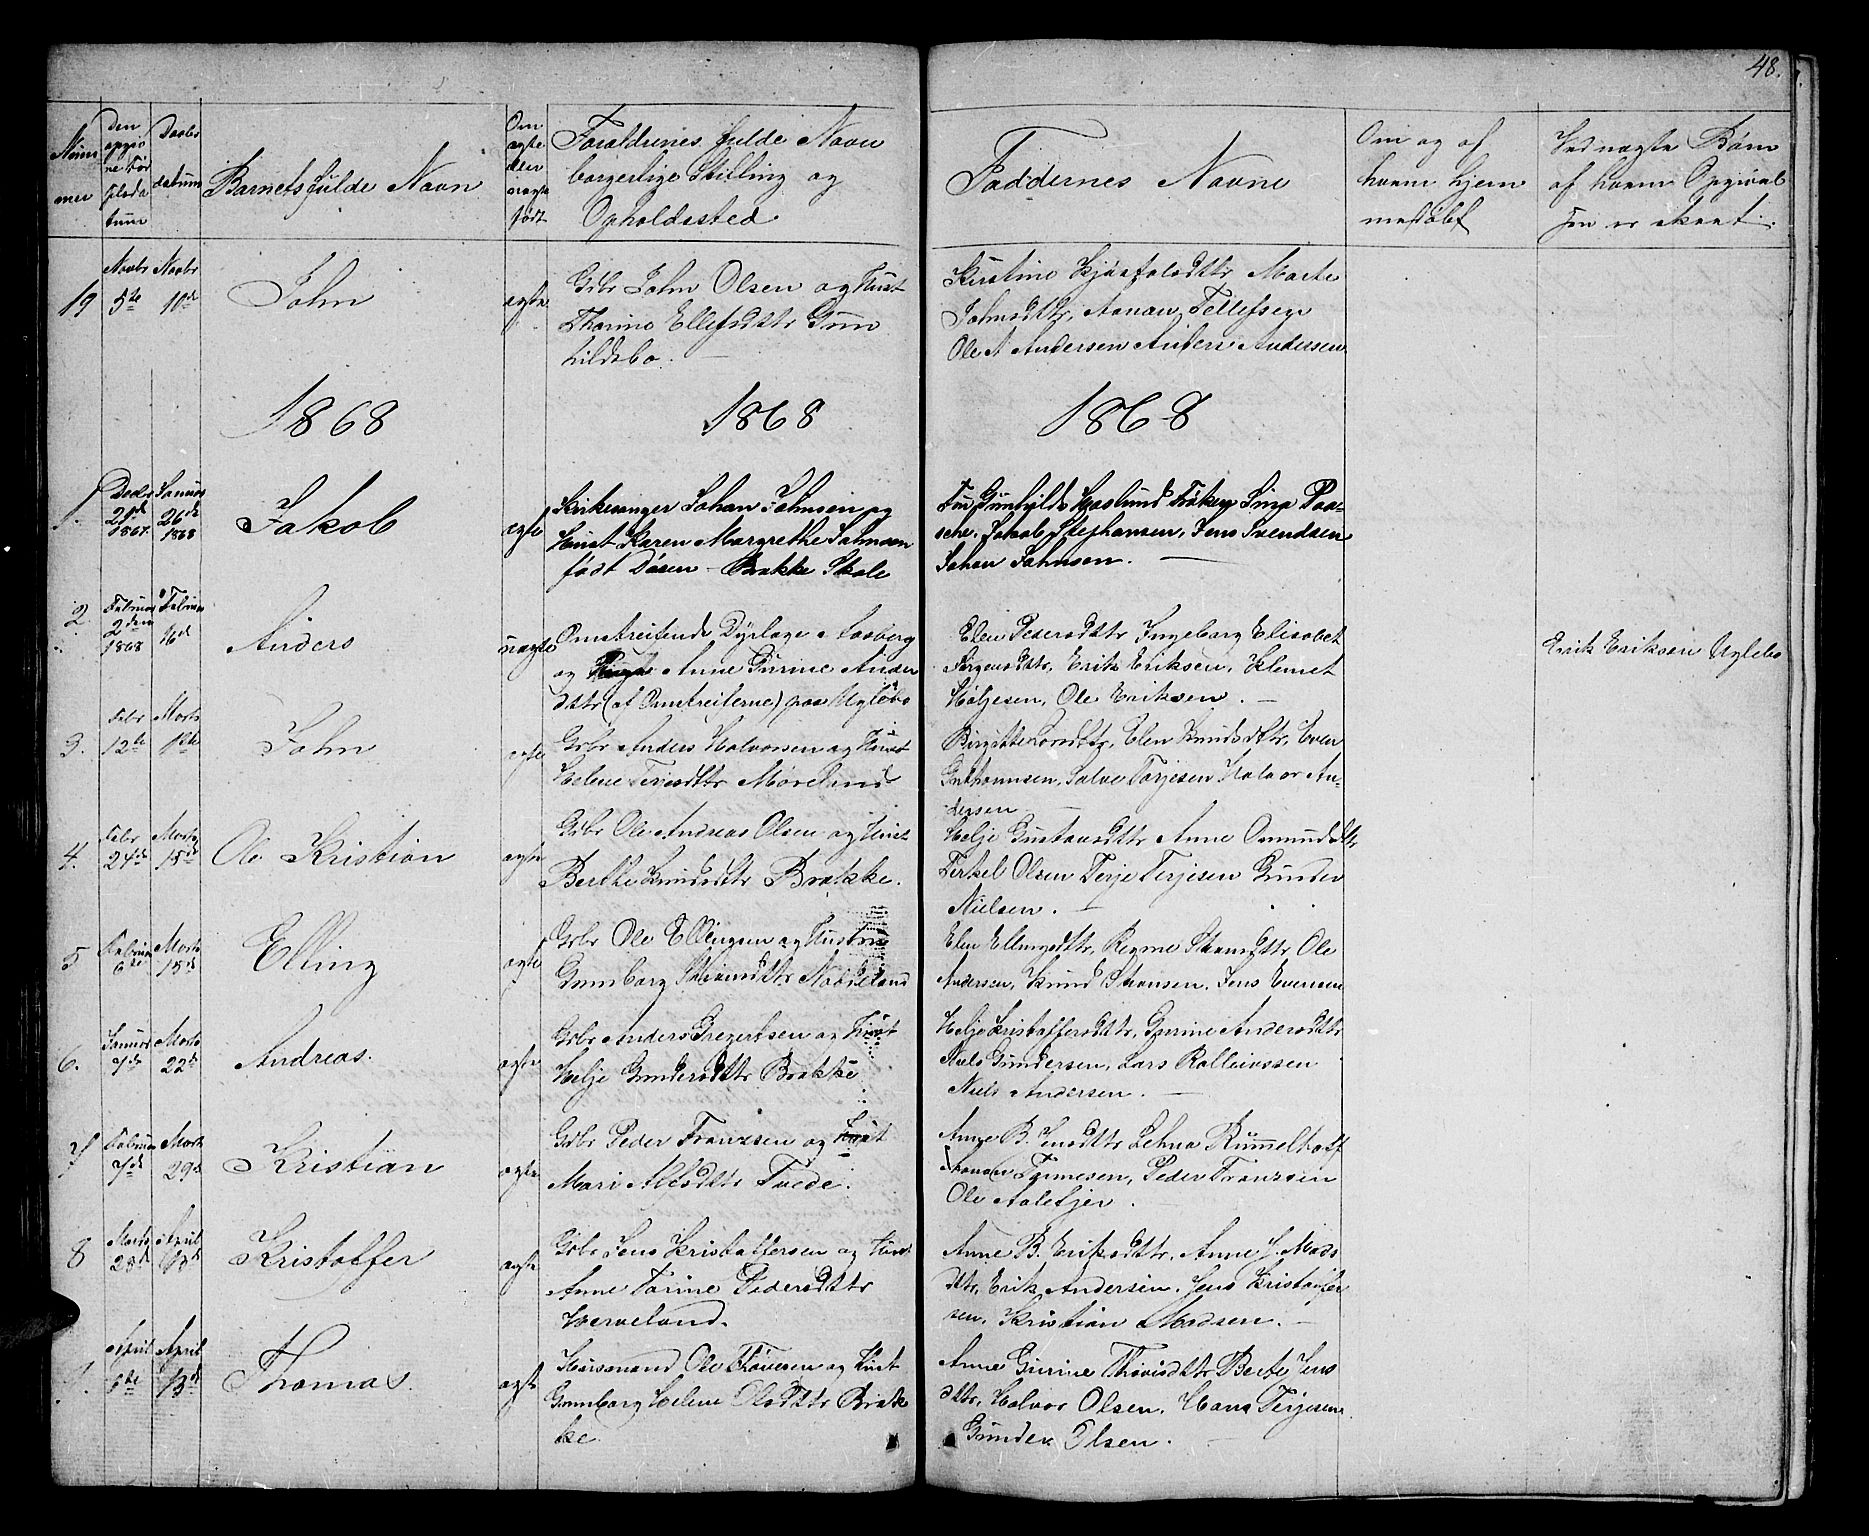 48.
Num
mer
Den
opgiv
ne Fø
dselsda
tum
Daabs
datum
Barnets fulde Navn
Om
ægte
eller
uægte
født
Forældrenes fulde Navn
borgerlige Stilling og
Opholdssted.
Faddernes Navne
Om og af
hvem hjem
medøbt
Ved uægte Børn
af hvem Opgivel
sen er skeet.
19
Novbr
5te
Novbr
10de
John
ægte
Grbr John Olsen og Hust
Thorine Ellefsdttr Gun
hildsbo.
Johnsdttr, Aanon Tellefsen
Ole A Andersen Anders Andersen
1868
1868
1868
1.
Decbr
21de
1867.
Januar
26de
1868
Jakob
ægte
Kirkesanger Johan Johnsen og
Hust Karen Margrethe Johnsen
født Døsen - Brække Skole
Fru Gunhild Haslund Frøken Sina Paa-
sche. Jakob Stephansen, Jens Svendsen
Johan Johnsen.
2.
Februar
2den
1868
Februar
16de
Anders
uægte
Omstreifende
og Anne Gurine Anders
dttr (af Omstreiferne) paa Uglebo
Elen Pedersdttr Ingeborg Elisabet
Jørgensdttr, Erik Eriksen, Klemet
Høljesen, Ole Eriksen.
Erik Eriksen Uglebo
3.
Febr
12te
Marts
1ste
John
ægte
Grbr Anders Halvorsen og Hust
Helene Terjesdttr Møreland
Elen Knudsdttr, Even
Guttormsen, Salve Torjesen Halvor An-
dersen
4.
Febr
24de
Marts
15de
Ole Kristian
ægte
Grbr Ole Andreas Olsen og Hust
Berthe Knudsdttr Brække.
Helje Gustavsdttr Anne Osmundsdttr
Terkel Olsen Terje Terjesen Gunder
Nielsen.
5
Februar
6te
Marts
15de
Elling
ægte
Grbr Ole Ellingsen og Hustru
Gunborg
Elen Ellingsdttr, Ole
Andersen, Knud Jens Evensen
6.
Januar
7de
Marts
22de
Andreas.
ægte
Grbr Anders Gregertsen og Hust
Helje Gundersdttr Brække
Helje Kristoffersdttr, Gurine Andersdttr
Niels Gundersen, Lars Rolleivssen
Niels Andersen.
7
Februar
7de
Marts
29de
Kristian
ægte
Grbr Peder Franzsen og Hust
Mari Alfsdttr Tvede.
Anne B. Jensdttr Lehna Rummelhoff
Aanon Tønnesen, Peder Franzsen
Ole
8
Marts
23de
April
13de
Kristoffer
ægte
Grbr Jens Kristoffersen og Hust
Anne Torine Pedersdttr
Herveland.
Anne B. Eriksdttr, Anne J. Mads
dttr, Erik Andersen. Jens Kristoffer
sen, Kristian Madsen.
9.
April
1ste
April
13de
Thomas.
ægte
Husmand Ole Thovesen og Hust
Gunborg Helene Olsdttr Bræk
ke.
Anne Gurine Thovesdttr Berte Jens
dttr, Halvor Olsen, Hans Terjesen.
Gunder Olsen.